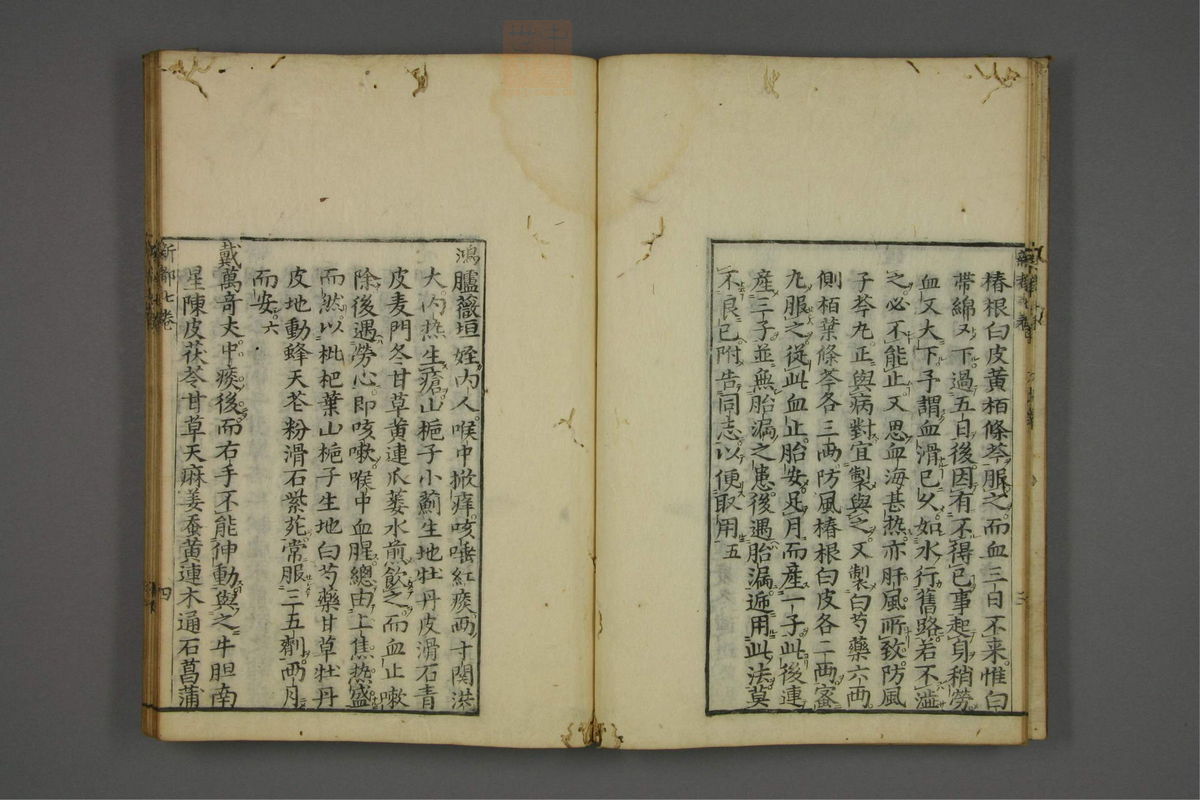 椿根白皮黄栢條芩服之而血三日不来惟白
帯綿又下過五日後因有不得已事起身稍勞
血又大下子謂血滑已久如水行舊路若不滋
之必不能止又思血海甚热亦肝風所致防風
子芩九正與病對宜製與之又製白芍藥六両
側栢葉條芩各三両防風椿根白皮各二両蜜
九服之従此血止胎安足月而産一子此後連
産三子並無胎漏之患後遇胎漏逓用此法莫
不良已附告同志以便取用五
鴻臚薇垣姪内人喉中㨨痒咳唾紅痰両寸関洪
大内热生瘡山梔子小薊生地牡丹皮滑石青
皮麦門冬甘草黄連瓜蔞水煎飲之而血止嗽
除後遇勞心即咳嗽喉中血腥總由上焦热盛
而然以枇杷葉山梔子生地白芍藥甘草牡丹
皮地動蜂天花粉滑石紫菀常服三五劑両月
而安六
戴萬奇丈中痰後而右手不能伸動與之牛胆南
星陳皮茯苓甘草天麻姜蚕黄連木通石菖蒲
新都七巻
四